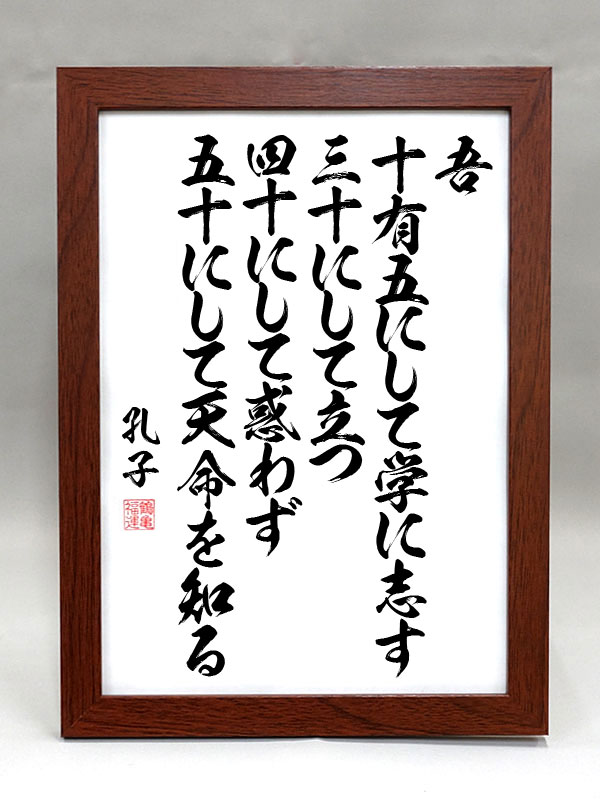 吾
十有五にして学に志す
三十にして立つ
四十にして惑わず
五十にして天命を知る
孔子
鶴亀
福運